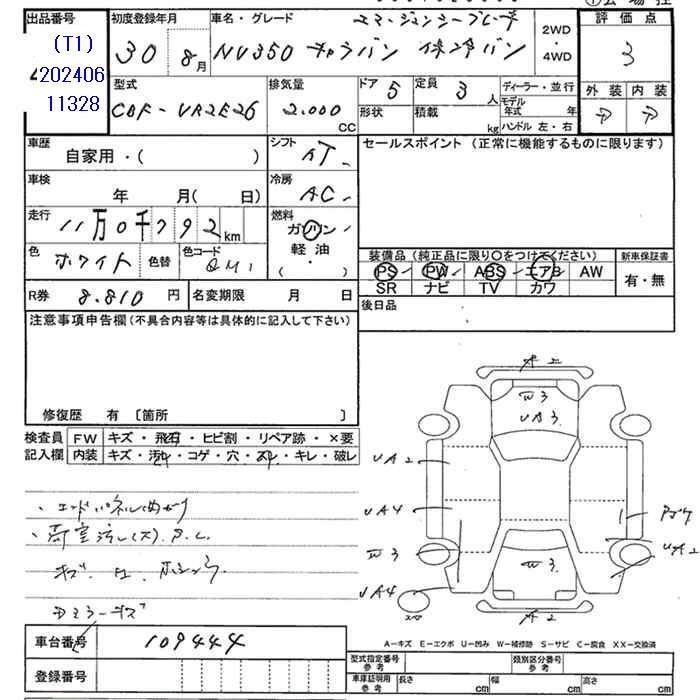 出品番号
(T1)
202406
11328
初度登録年月
30 8月
車名・グレード
エマージェンシーブレーキ
NV350 キャラバン 保冷バン
2WD
・
4WD
評価点
3
外装 内装
型式
CBF-VR2E26
排気量
2.000
CC
ドア 5
形状
定員 3 人
積載 kg
ディーラー・並行
モデル
年式 年
ハンドル 左・右
車歴
自家用・( )
シフト
AT
セールスポイント (正常に機能するものに限ります)
車検
年 月( 日)
冷房
AC
走行
11万0千792km
燃料
ガソリン
軽油
・
色
ホワイト
色替
色コード
QM1
装備品 (純正品に限り〇をつけてください)
PS PW ABS エアB AW
SR ナビ TV カワ
新車保証書
有・無
R券 8.810 円
名変期限 月 日
後日品
注意事項申告欄(不具合内容等は具体的に記入して下さい)
修復歴 有 〔箇所 〕
検査員
記入欄
FW キズ・飛石・ヒビ割・リペア跡・×要
内装 キズ・汚れ・コゲ・穴・スレ・キレ・破レ
A2
W3
UA3
UA2
UA4
W3
UA4
W3
UA2
A2
・エンドパネル曲がり
・荷室汚レ(大).
Dミラーキズ
車台番号 109444
登録番号
A-キズ E-エクボ U-凹み W-補修跡 S-サビ C-腐食 XX-交換済
型式指定番号
参考
類別区分番号
参考
車庫証明用
参考
長さ cm 幅 cm 高さ cm